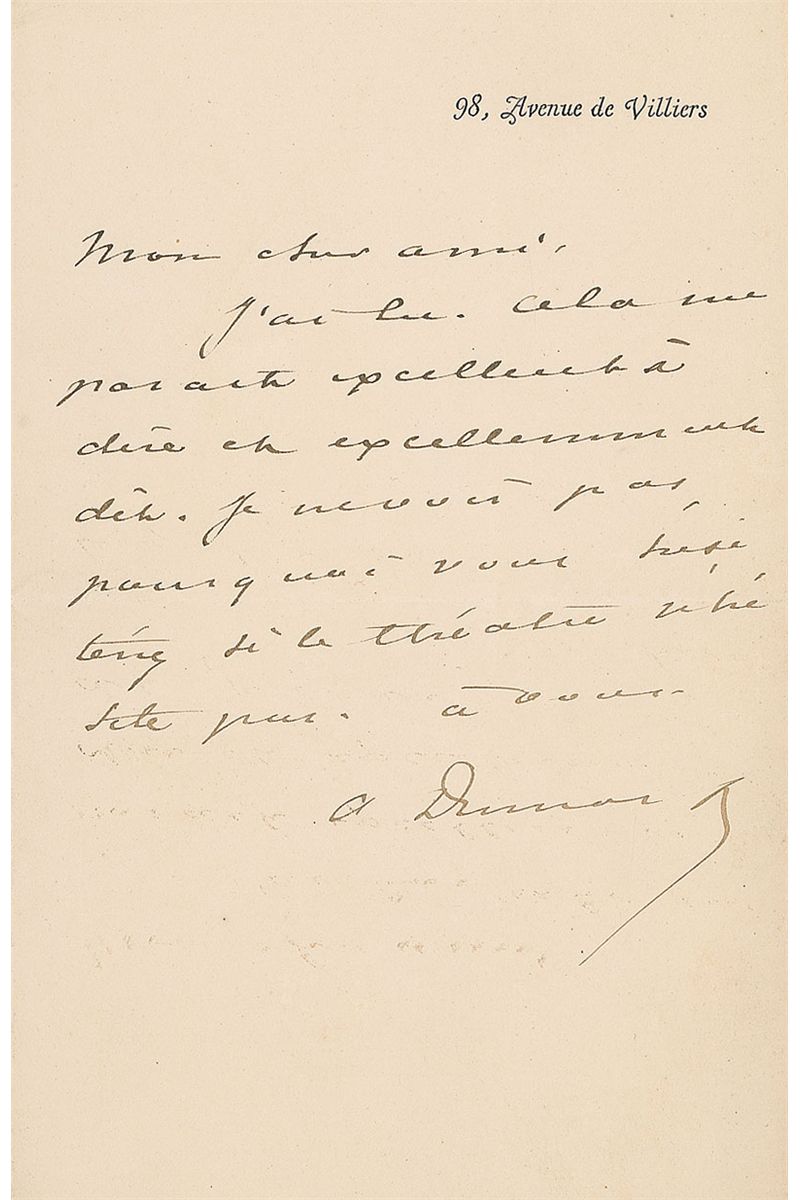 98, Avenue de Villiers
Mon cher ami,
J'ai lu. Cela me
parait excellent à
dire et excellemment
dit. Je ne vois pas
pourquoi vous hési
terez si le théâtre n'hé
site pas. à vous
A Dumas